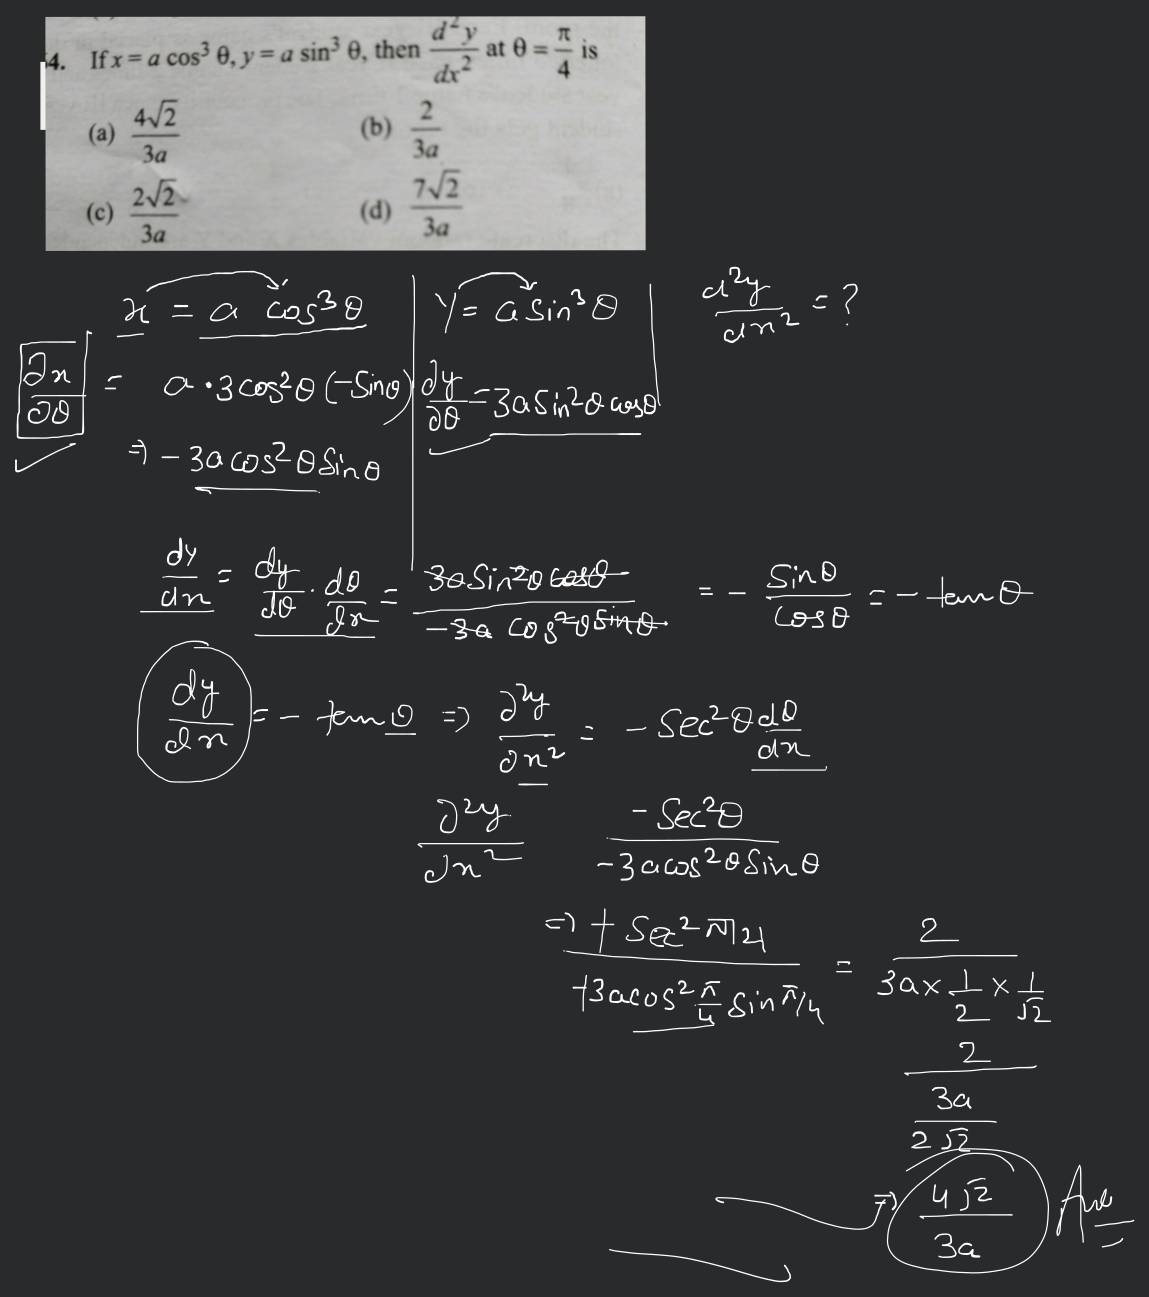 4. If x = a cos³ θ, y = a sin³ θ, then d²y/dx² at θ = π/4 is
(a) 4√2/3a (b) 2/3a
(c) 2√2/3a (d) 7√2/3a
x = a cos³θ | y = a sin³θ | d²y/dx² = ?
∂x/∂θ = a·3cos²θ(-Sinθ) | ∂y/∂θ = 3a Sin²θ cosθ
⇒ -3a cos²θ Sinθ
dy/dx = dy/dθ · dθ/dx = 3a Sin²θ cosθ / -3a cos²θ Sinθ = - Sinθ/cosθ = - tanθ
dy/dx = - tanθ ⇒ ∂²y/∂x² = - Sec²θ dθ/dx
∂²y/∂x² -Sec²θ / -3a cos²θ Sinθ
⇒ + Sec² π/4 / +3a cos² π/4 Sin π/4 = 2 / 3a × 1/2 × 1/√2
2 / 3a / 2√2
⇒ 4√2/3a Ans